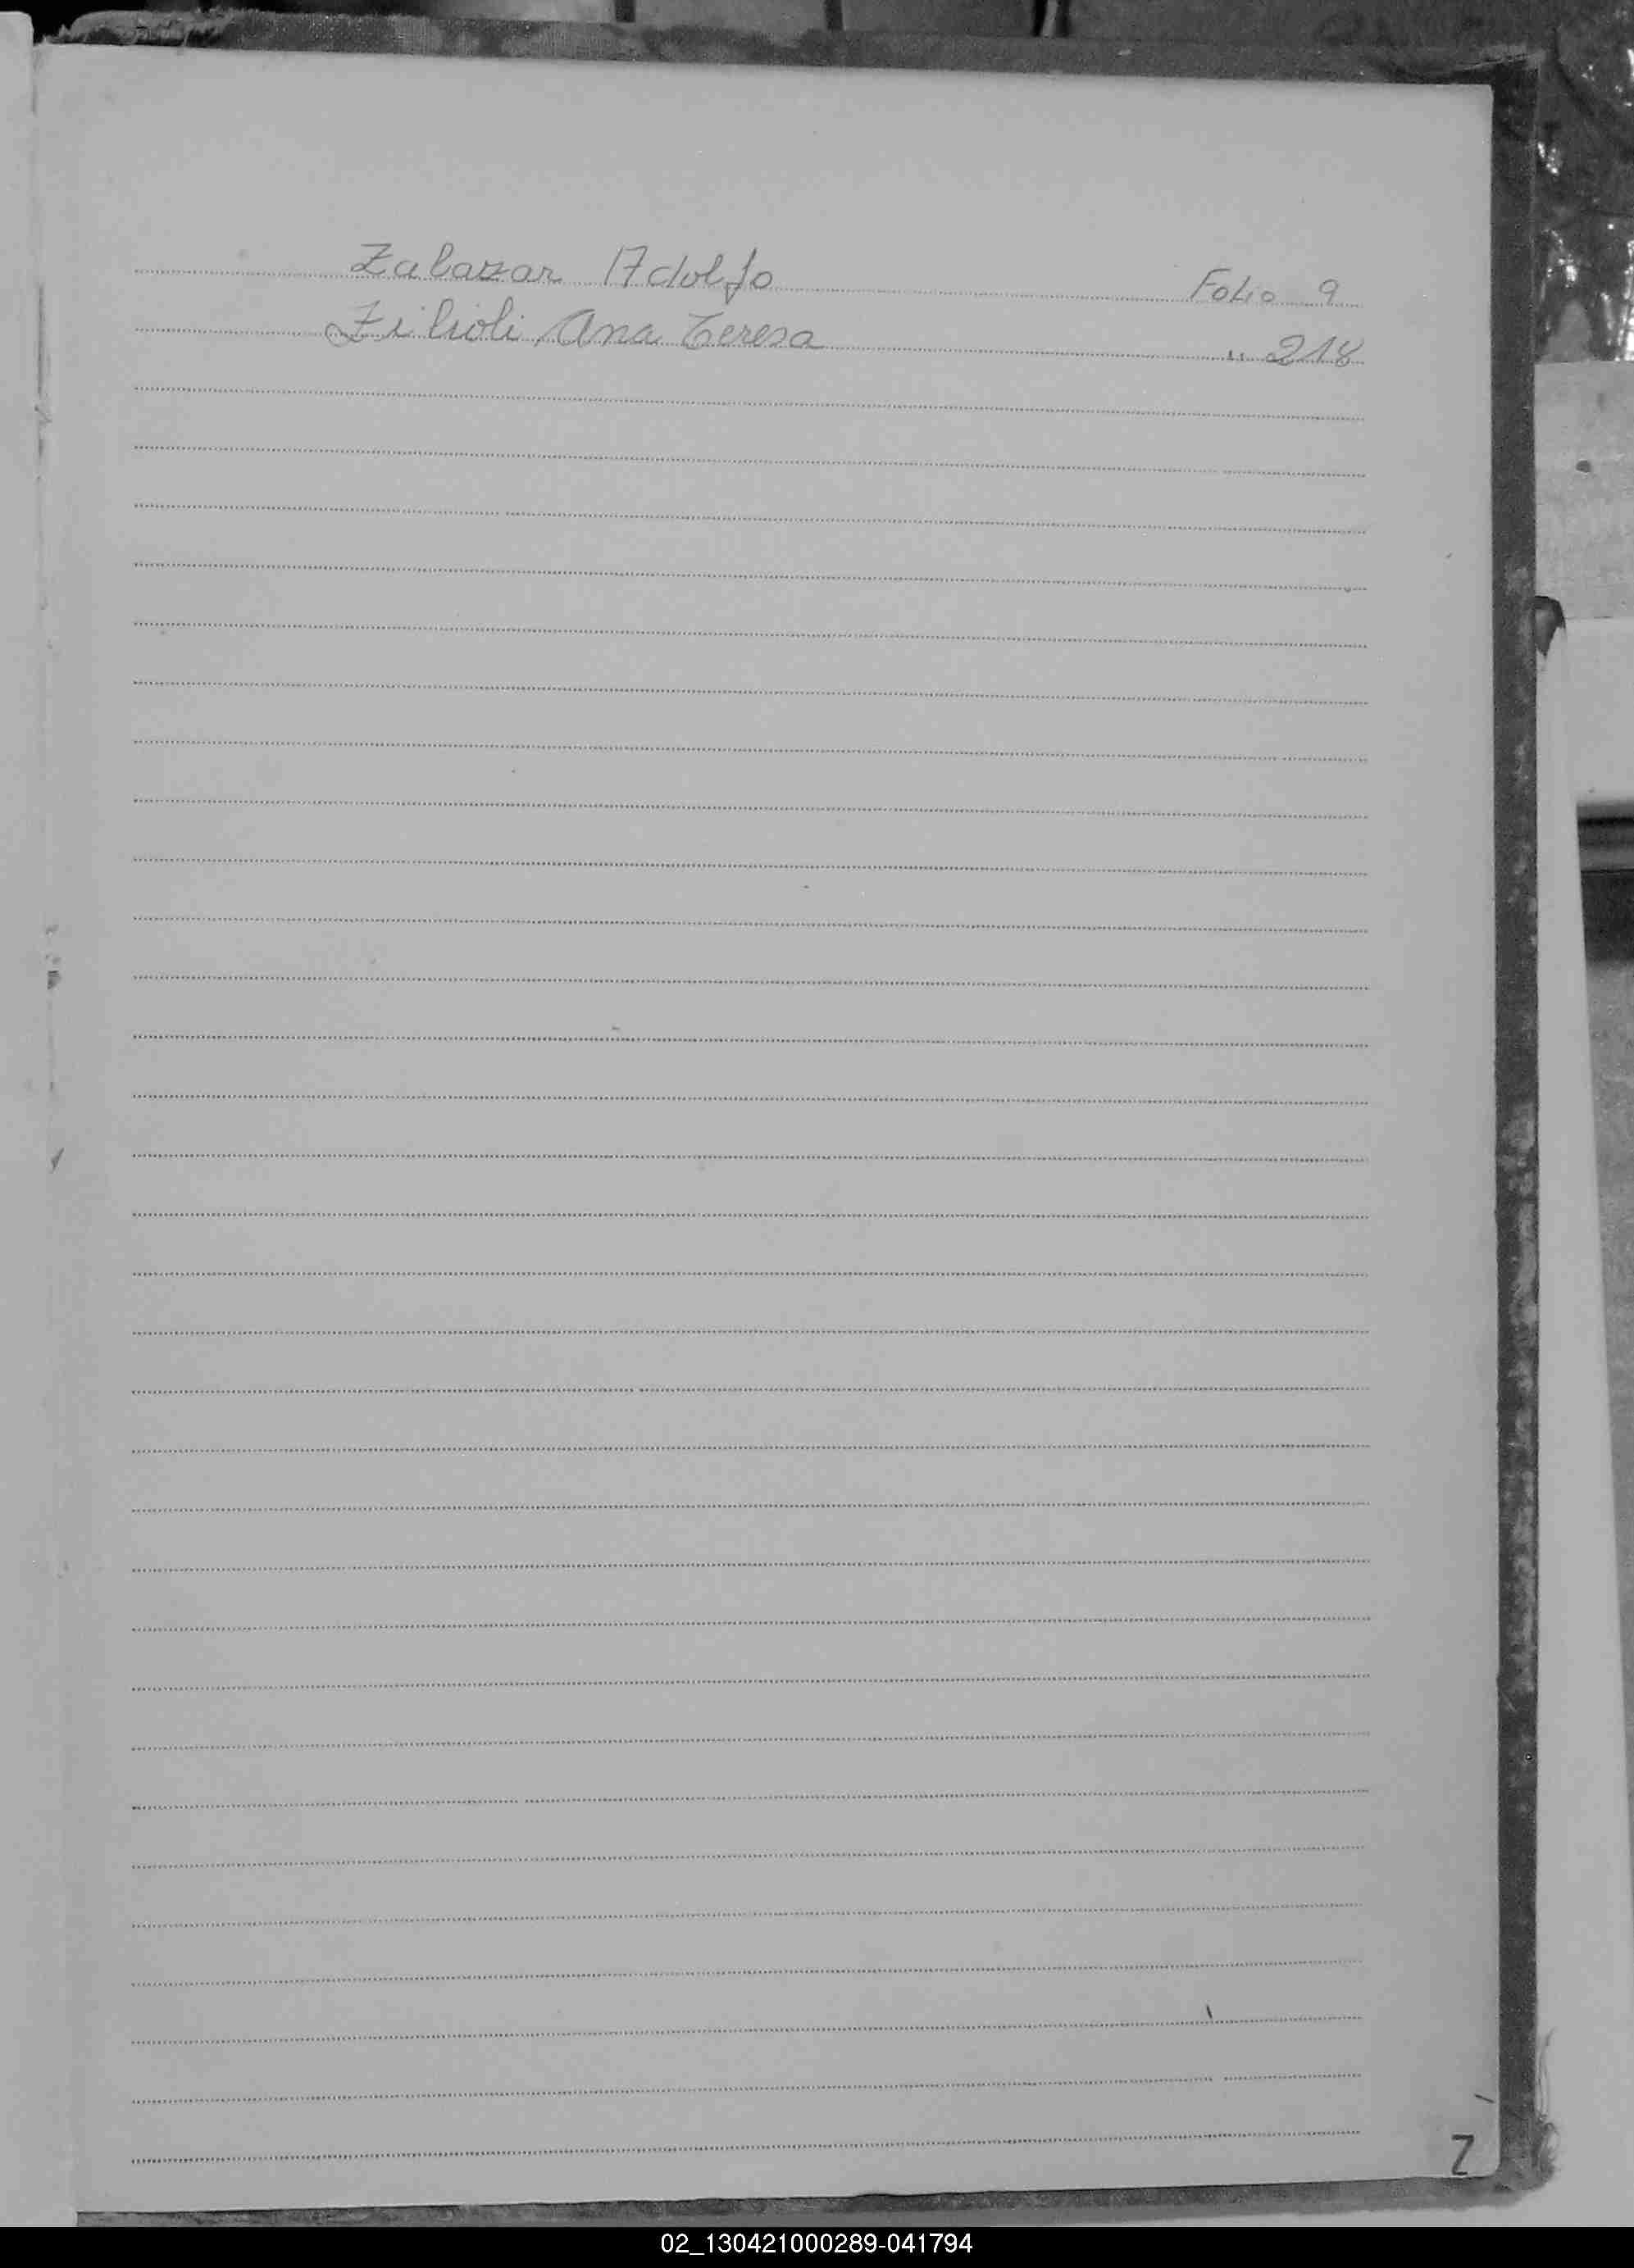 Zalazar Adolfo Folio 9
Zilioli Ana Teresa " 218
Z
02_130421000289-041794